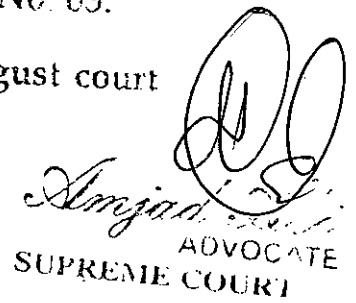 No. 05.
gust court
Amjad
ADVOCATE
SUPREME COURT